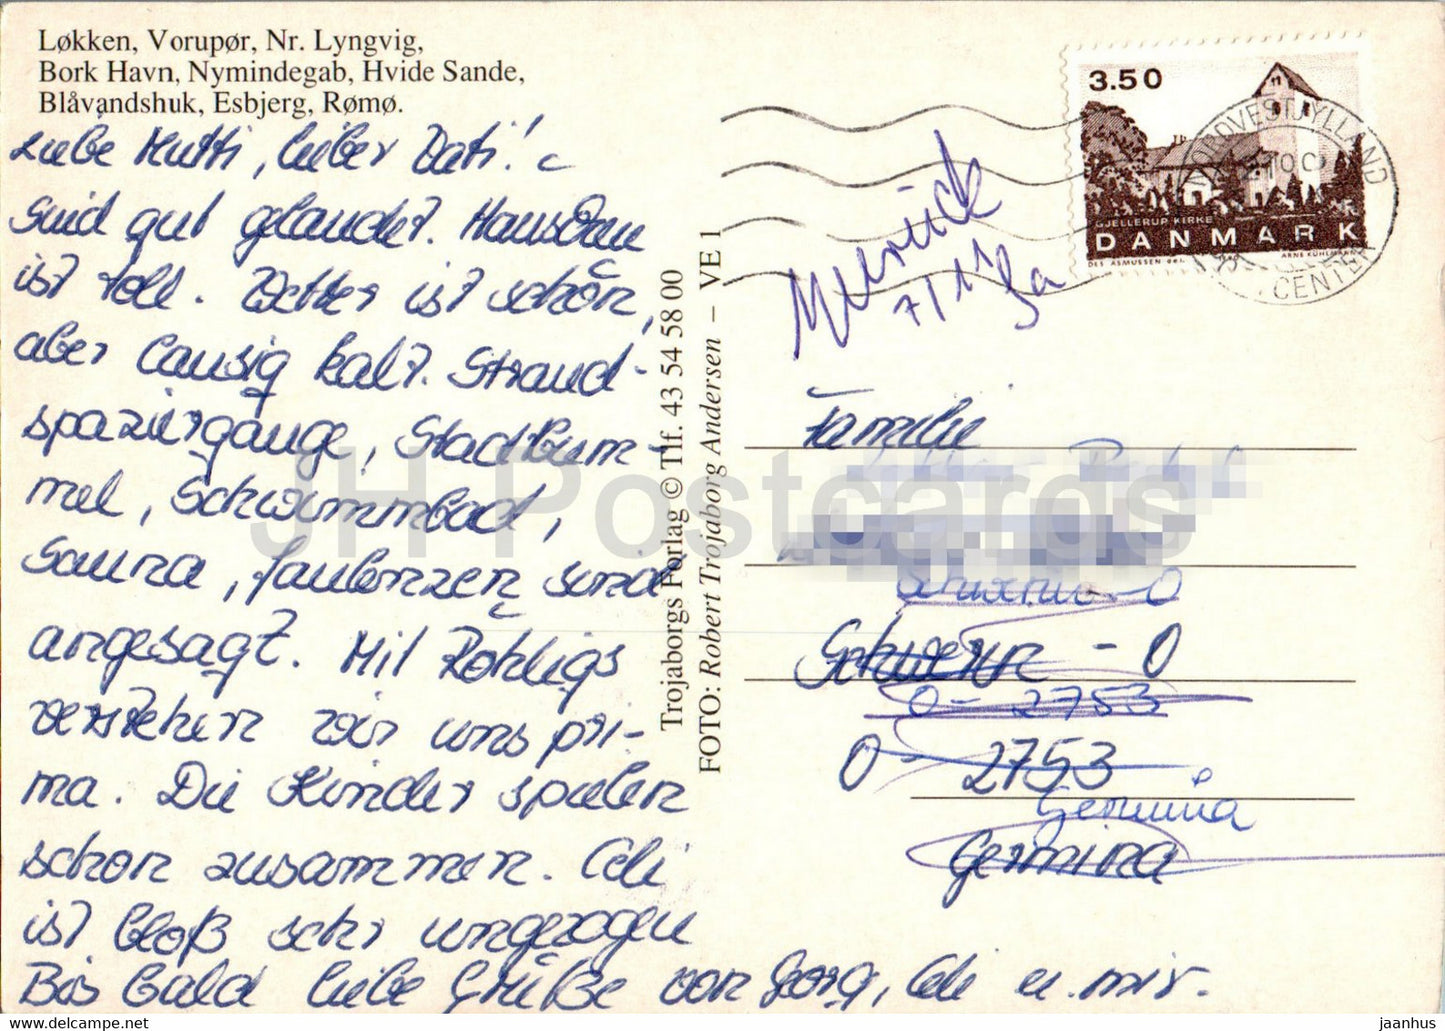 Løkken, Vorupør, Nr. Lyngvig,
Bork Havn, Nymindegab, Hvide Sande,
Blåvandshuk, Esbjerg, Rømø.
Liebe Mutti, lieber Vati!
Sind gut gelandet. Haus
ist toll. Wetter ist schön,
aber lausig kalt. Strand-
spaziergänge, Stadtbum-
mel, Schwimmbad,
Sauna, faulenzen sind
angesagt. Mit
verstehen wir uns pri-
ma. Die Kinder spielen
schon zusammen. Celi
ist bloß sehr ungezogen
Bis bald liebe Grüße von Georg, Celi u. mir.
Trojaborgs Forlag © Tlf. 43 54 58 00
FOTO: Robert Trojaborg Andersen – VE 1
3.50
GJELLERUP KIRKE
DANMARK
DES ASMUSSEN DEL.
ARNE KÜHLMANN SC.
NORDVESTJYLLAND
CENTER
7/11
Familie
Schwerin - O
Schwerin - O
O - 2753
O - 2753
JH Postcards
jaanhus